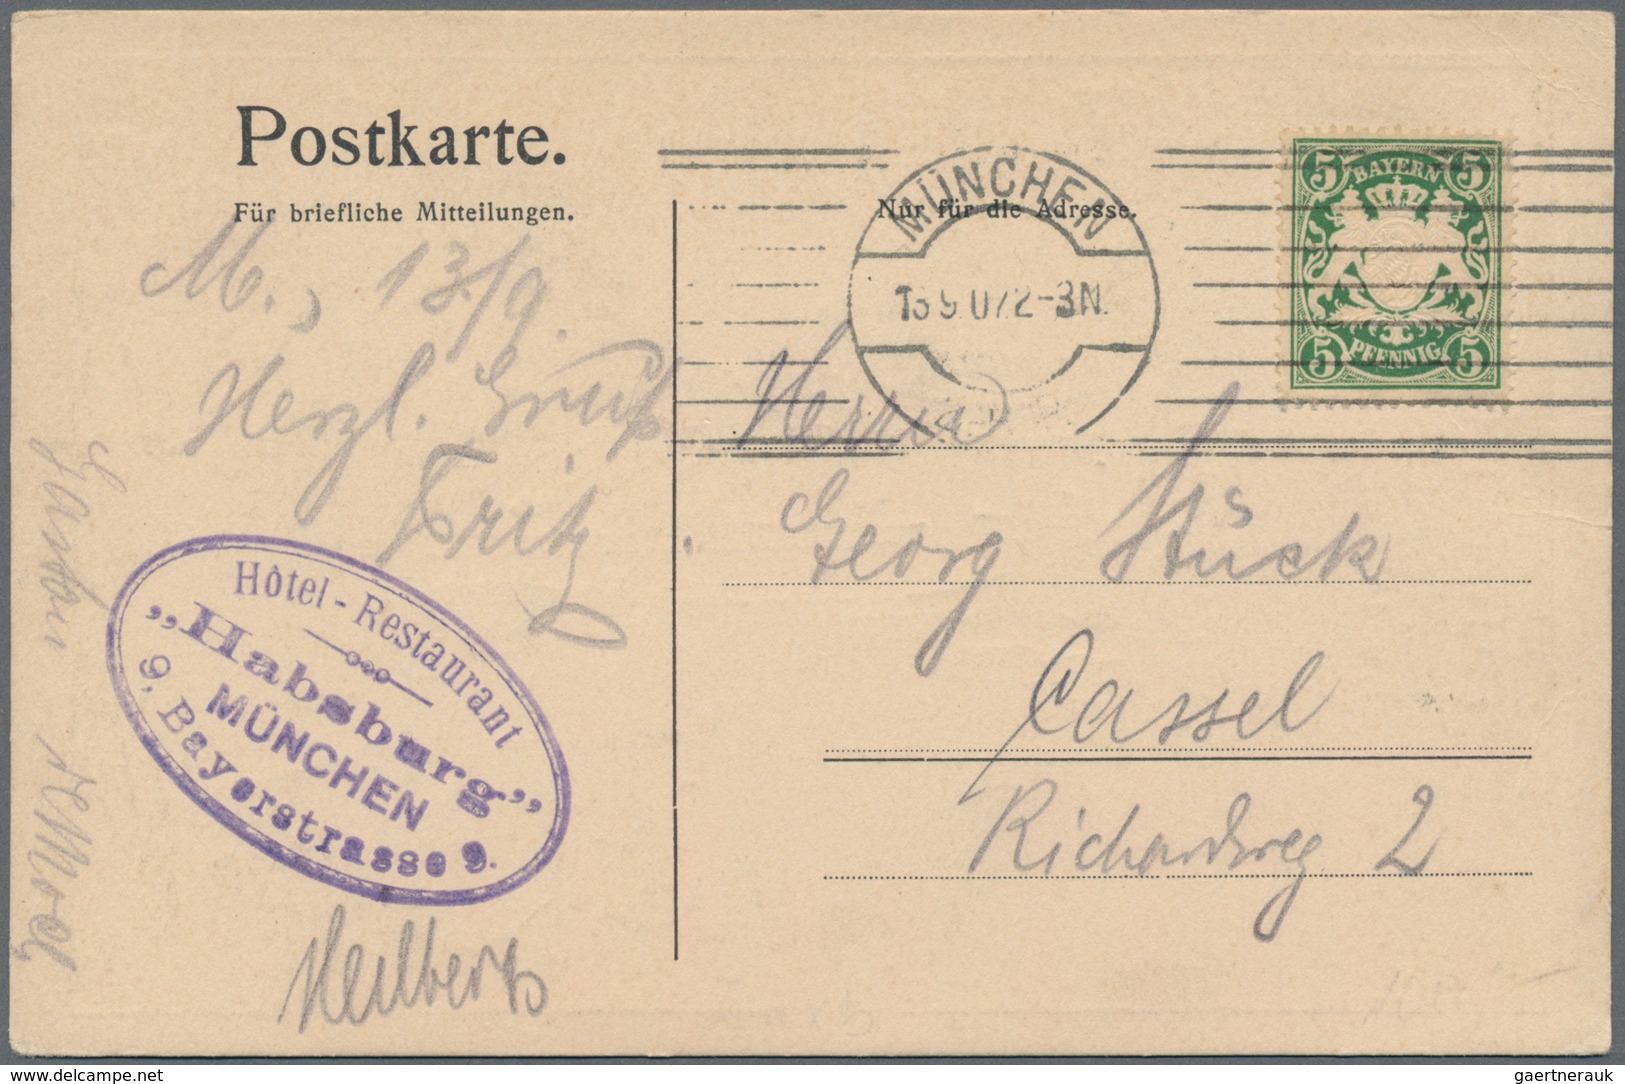 Postkarte.
Für briefliche Mitteilungen.
Nur für die Adresse.
MÜNCHEN
13 9 07 2-3N.
5 BAYERN 5
5 PFENNIG 5
M., 13/9.
Herzl. Gruß
Fritz
Hôtel-Restaurant
„Habsburg"
MÜNCHEN
9. Bayerstrasse 9.
Herrn
Georg Stück
Cassel
Richardweg 2
www.delcampe.net
gaertnerauk